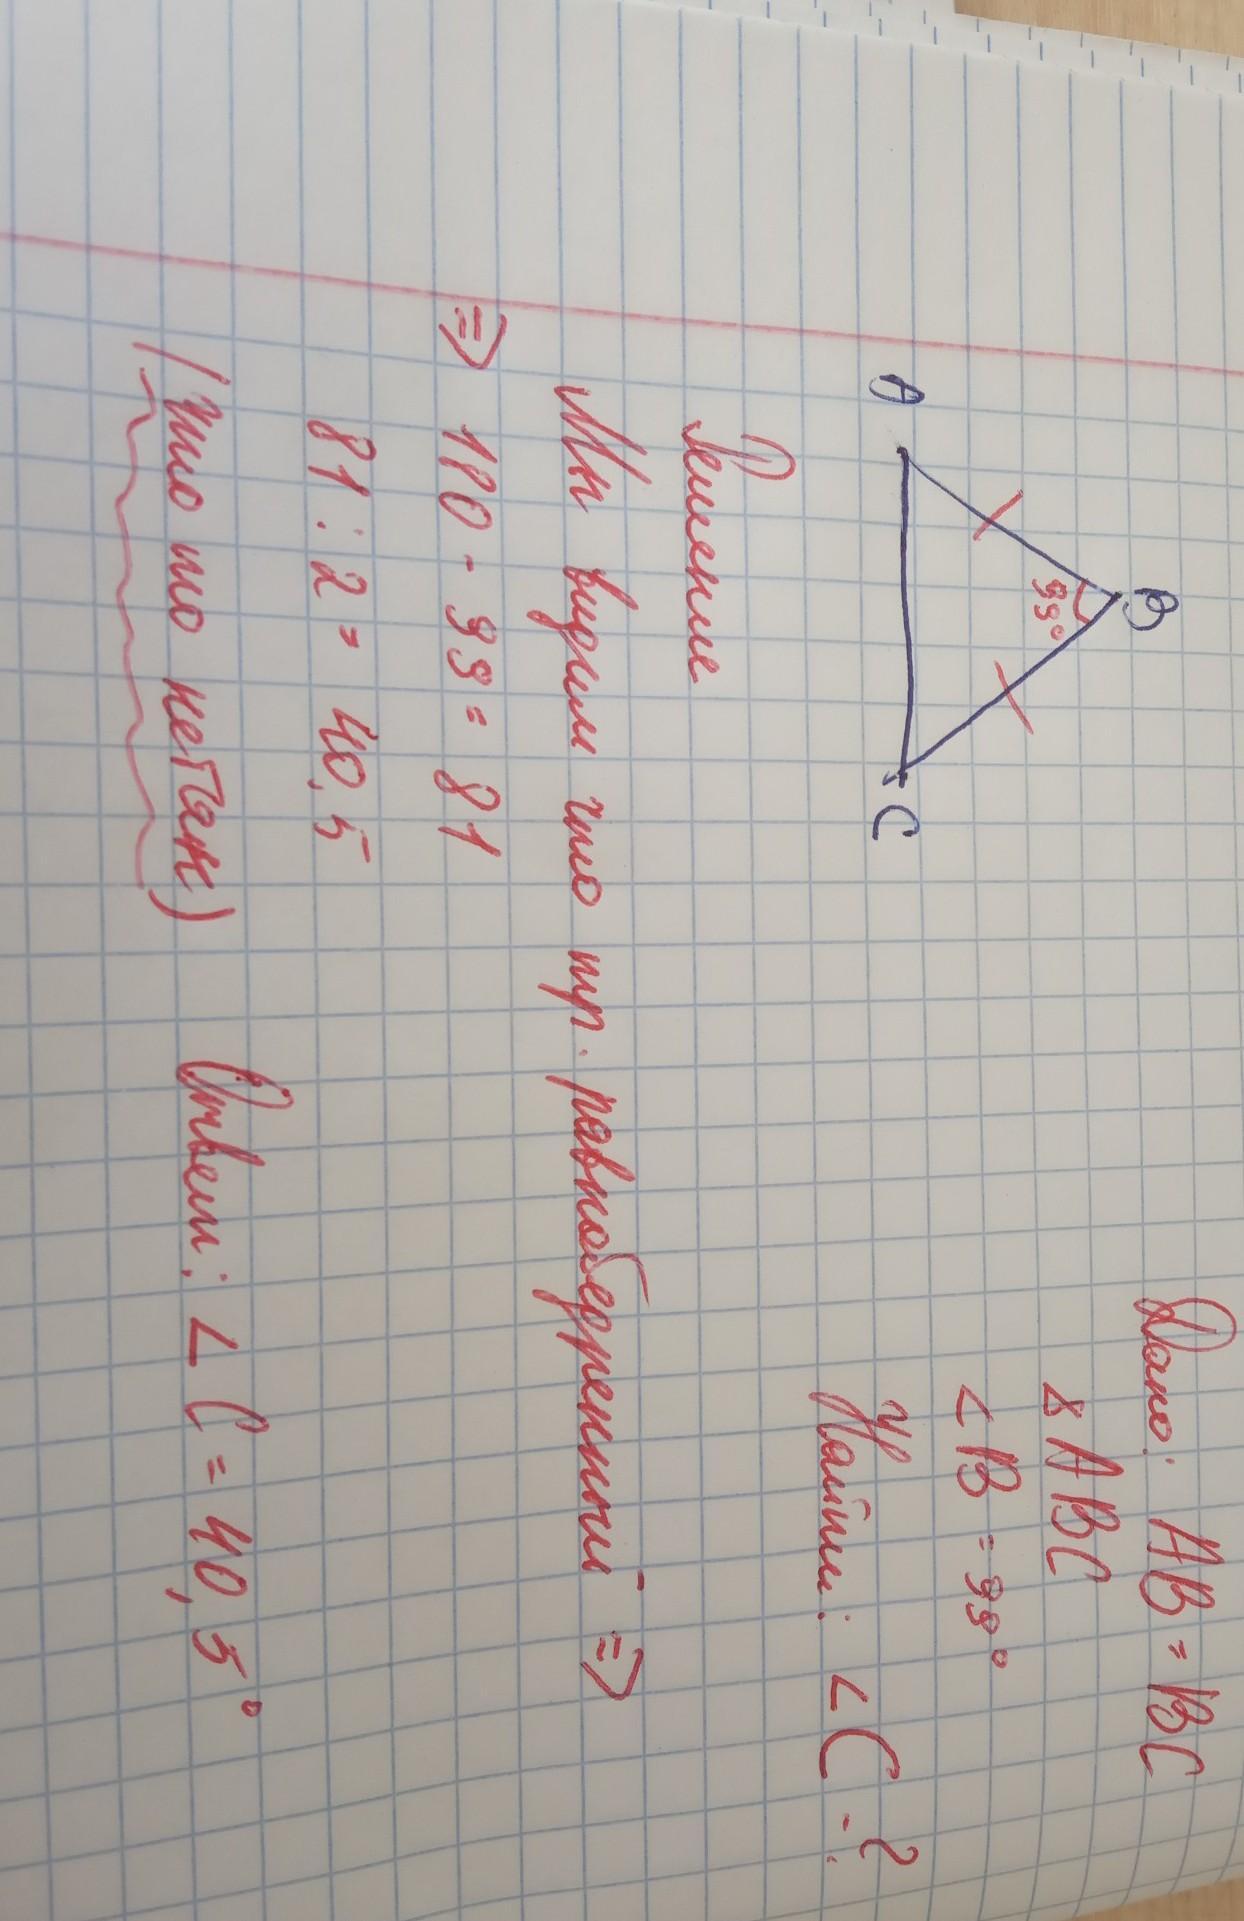 Дано: AB = BC
∆ ABC
∠ B = 99°
Найти: ∠ C - ?
B
99°
A
C
Решение
Мы видим что тр. равнобедренный =>
=> 180 - 99 = 81
81 : 2 = 40,5
(что то не так)
Ответ: ∠ C = 40,5°